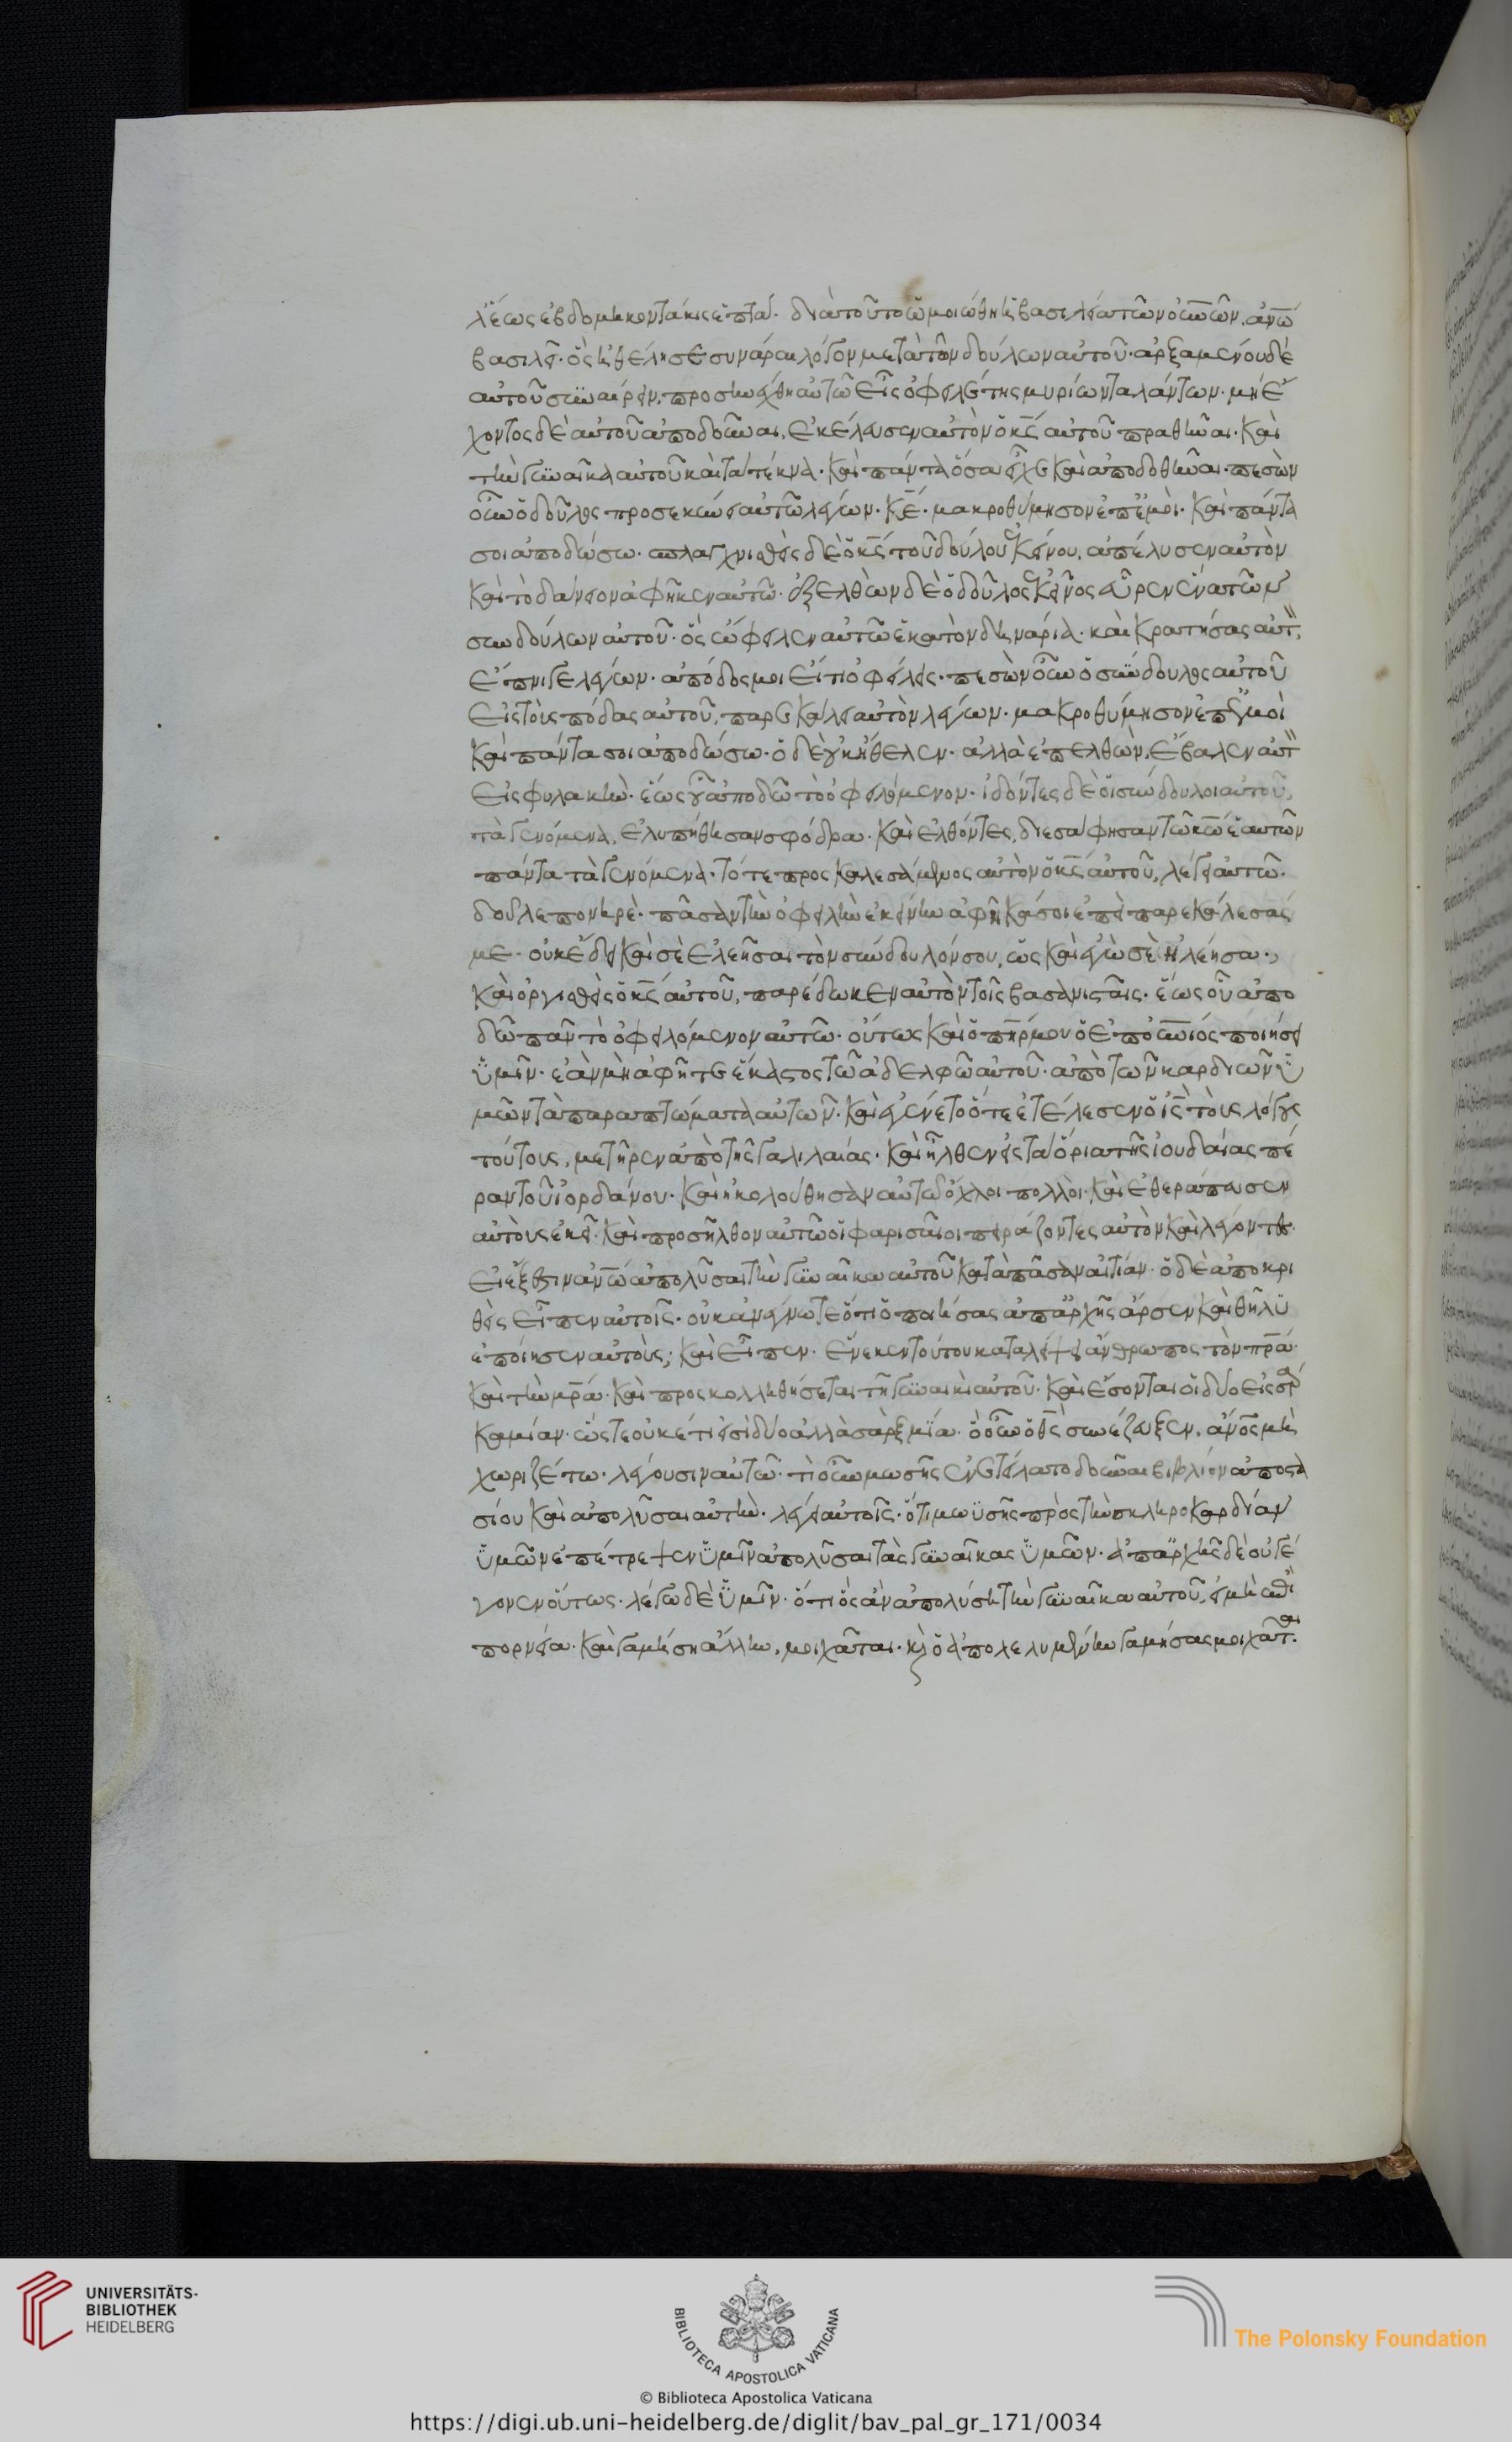 λ' ἕως ἑβδομηκοντάκις ἑπτά· διὰ τοῦτο ὡμοιώθη ἡ βασιλεία τῶν οὐνῶν, ἀνῶ
βασιλεῖ· ὃς ἠθέλησε συνάραι λόγον μετὰ τῶν δούλων αὐτοῦ· ἀρξαμένου δὲ
αὐτοῦ συναίρειν, προσηνέχθη αὐτῶ εἷς ὀφειλέτης μυρίων ταλάντων· μὴ ἔ
χοντος δὲ αὐτοῦ ἀποδοῦναι, ἐκέλευσεν αὐτὸν ὁ κς αὐτοῦ πραθῆναι· καὶ
τὴν γυναῖκα αὐτοῦ καὶ τὰ τέκνα· καὶ πάντα ὅσα εἶχε καὶ ἀποδοθῆναι· πεσὼν
οὖν ὁ δοῦλος προσεκύνει αὐτῶ λέγων· κε· μακροθύμησον ἐπ' ἐμοὶ· καὶ πάντα
σοι ἀποδώσω· σπλαγχνισθεὶς δὲ ὁ κς τοῦ δούλου ἐκείνου, ἀπέλυσεν αὐτὸν
καὶ τὸ δάνειον ἀφῆκεν αὐτῶ· ἐξελθὼν δὲ ὁ δοῦλος ἐκεῖνος εὗρεν ἕνα τῶν
συνδούλων αὐτοῦ· ὃς ὤφειλεν αὐτῶ ἑκατὸν δηνάρια· καὶ κρατήσας αὐτ,
ἔπνιγε λέγων· ἀπόδος μοι εἴ τι ὀφείλεις· πεσὼν οὖν ὁ σύνδουλος αὐτοῦ
εἰς τοὺς πόδας αὐτοῦ, παρεκάλει αὐτὸν λέγων· μακροθύμησον ἐπ' ἐμοὶ
καὶ πάντα σοι ἀποδώσω· ὁ δὲ οὐκ ἤθελεν· ἀλλὰ ἐπελθὼν, ἔβαλεν αὐτ
εἰς φυλακὴν· ἕως οὗ ἀποδῶ τὸ ὀφειλόμενον· ἰδόντες δὲ οἱ σύνδουλοι αὐτοῦ,
τὰ γενόμενα, ἐλυπήθησαν σφόδρα· καὶ ἐλθόντες, διεσάφησαν τῶ κω ἑαυτῶν
πάντα τὰ γενόμενα· τότε προσκαλεσάμενος αὐτὸν ὁ κς αὐτοῦ, λέγει αὐτῶ·
δοῦλε πονηρὲ· πᾶσαν τὴν ὀφειλὴν ἐκείνην ἀφῆκά σοι ἐπεὶ παρεκάλεσάς
με· οὐκ ἔδει καὶ σὲ ἐλεῆσαι τὸν σύνδουλόν σου, ὡς καὶ ἐγὼ σὲ ἠλέησα·
καὶ ὀργισθεὶς ὁ κς αὐτοῦ, παρέδωκεν αὐτὸν τοῖς βασανισταῖς· ἕως οὗ ἀπο
δῶ πᾶν τὸ ὀφειλόμενον αὐτῶ· οὕτως καὶ ὁ πηρ μου ὁ ἐπουνιός ποιήσει
ὑμῖν· ἐὰν μὴ ἀφῆτε ἕκαστος τῶ ἀδελφῶ αὐτοῦ· ἀπὸ τῶν καρδιῶν ὑ
μῶν τὰ παραπτώματα αὐτῶν· καὶ ἐγένετο ὅτε ἐτέλεσεν ὁ ις τοὺς λόγους
τούτους, μετῆρεν ἀπὸ τῆς γαλιλαίας· καὶ ἦλθεν εἰς τὰ ὅρια τῆς ἰουδαίας πέ
ραν τοῦ ἰορδάνου· καὶ ἠκολούθησαν αὐτῶ ὄχλοι πολλοὶ· καὶ ἐθεράπευσεν
αὐτοὺς ἐκεῖ· καὶ προσῆλθον αὐτῶ οἱ φαρισαῖοι πειράζοντες αὐτὸν καὶ λέγοντες·
εἰ ἔξεστιν ἀνω ἀπολῦσαι τὴν γυναῖκα αὐτοῦ κατὰ πᾶσαν αἰτίαν· ὁ δὲ ἀποκρι
θεὶς εἶπεν αὐτοῖς· οὐκ ἀνέγνωτε ὅτι ὁ ποιήσας ἀπ' ἀρχῆς ἄρσεν καὶ θῆλυ
ἐποίησεν αὐτοὺς; καὶ εἶπεν· ἕνεκεν τούτου καταλείψει ἄνθρωπος τὸν πρα·
καὶ τὴν μρα· καὶ προσκολληθήσεται τῆ γυναικὶ αὐτοῦ· καὶ ἔσονται οἱ δύο εἰς σάρ
κα μίαν· ὥστε οὐκέτι εἰσὶ δύο ἀλλὰ σὰρξ μία· ὃ οὖν ὁ θς συνέζευξεν, ἄνος μὴ
χωριζέτω· λέγουσιν αὐτῶ· τί οὖν μωσῆς ἐνετείλατο δοῦναι βιβλίον ἀποστα
σίου καὶ ἀπολῦσαι αὐτὴν· λέγει αὐτοῖς· ὅτι μωϋσῆς πρὸς τὴν σκληροκαρδίαν
ὑμῶν ἐπέτρεψεν ὑμῖν ἀπολῦσαι τὰς γυναῖκας ὑμῶν· ἀπ' ἀρχῆς δὲ οὐ γέ
γονεν οὕτως· λέγω δὲ ὑμῖν· ὅτι ὃς ἂν ἀπολύση τὴν γυναῖκα αὐτοῦ, εἰ μὴ ἐπὶ
πορνεία· καὶ γαμήση ἄλλην, μοιχᾶται· κὶ ὁ ἀπολελυμένην γαμήσας μοιχᾶται·
UNIVERSITÄTS-
BIBLIOTHEK
HEIDELBERG
BIBLIOTECA APOSTOLICA VATICANA
The Polonsky Foundation
© Biblioteca Apostolica Vaticana
https://digi.ub.uni-heidelberg.de/diglit/bav_pal_gr_171/0034